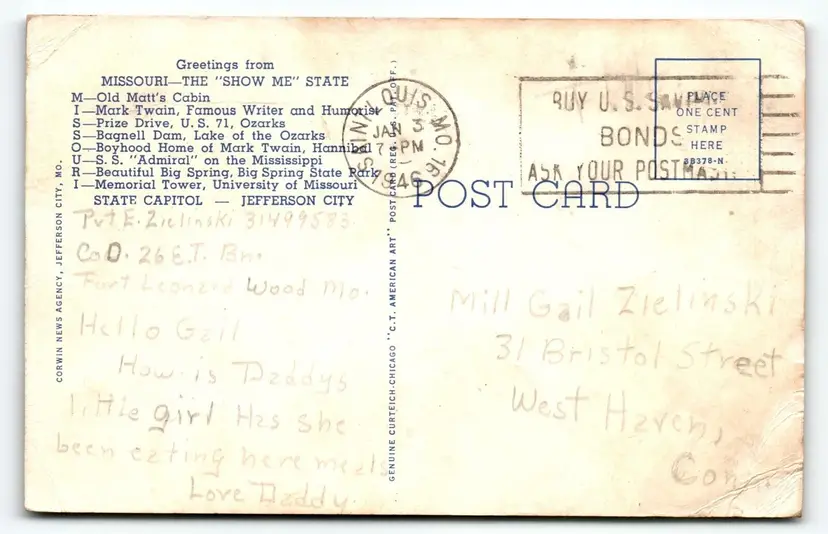 Greetings from
MISSOURI—THE "SHOW ME" STATE
M—Old Matt's Cabin
I—Mark Twain, Famous Writer and Humorist
S—Prize Drive, U.S. 71, Ozarks
S—Bagnell Dam, Lake of the Ozarks
O—Boyhood Home of Mark Twain, Hannibal
U—S.S. "Admiral" on the Mississippi
R—Beautiful Big Spring, Big Spring State Park
I—Memorial Tower, University of Missouri
STATE CAPITOL — JEFFERSON CITY
Pvt E. Zielinski 31499583
Co D. 26 E.T. Bn.
Fort Leonard Wood Mo.
Hello Gail
How is Daddys
little girl Has she
been eating here meals
Love Daddy
CORWIN NEWS AGENCY, JEFFERSON CITY, MO.
GENUINE CURTEICH-CHICAGO "C.T. AMERICAN ART" POST CARD (REG. U.S. PAT. OFF.)
SAINT LOUIS, MO. 16
JAN 3
7 PM
1946
BUY U.S. SAVINGS
BONDS
ASK YOUR POSTMASTER
PLACE
ONE CENT
STAMP
HERE
8B378-N
POST CARD
Mill Gail Zielinski
31 Bristol Street
West Haven,
Conn.